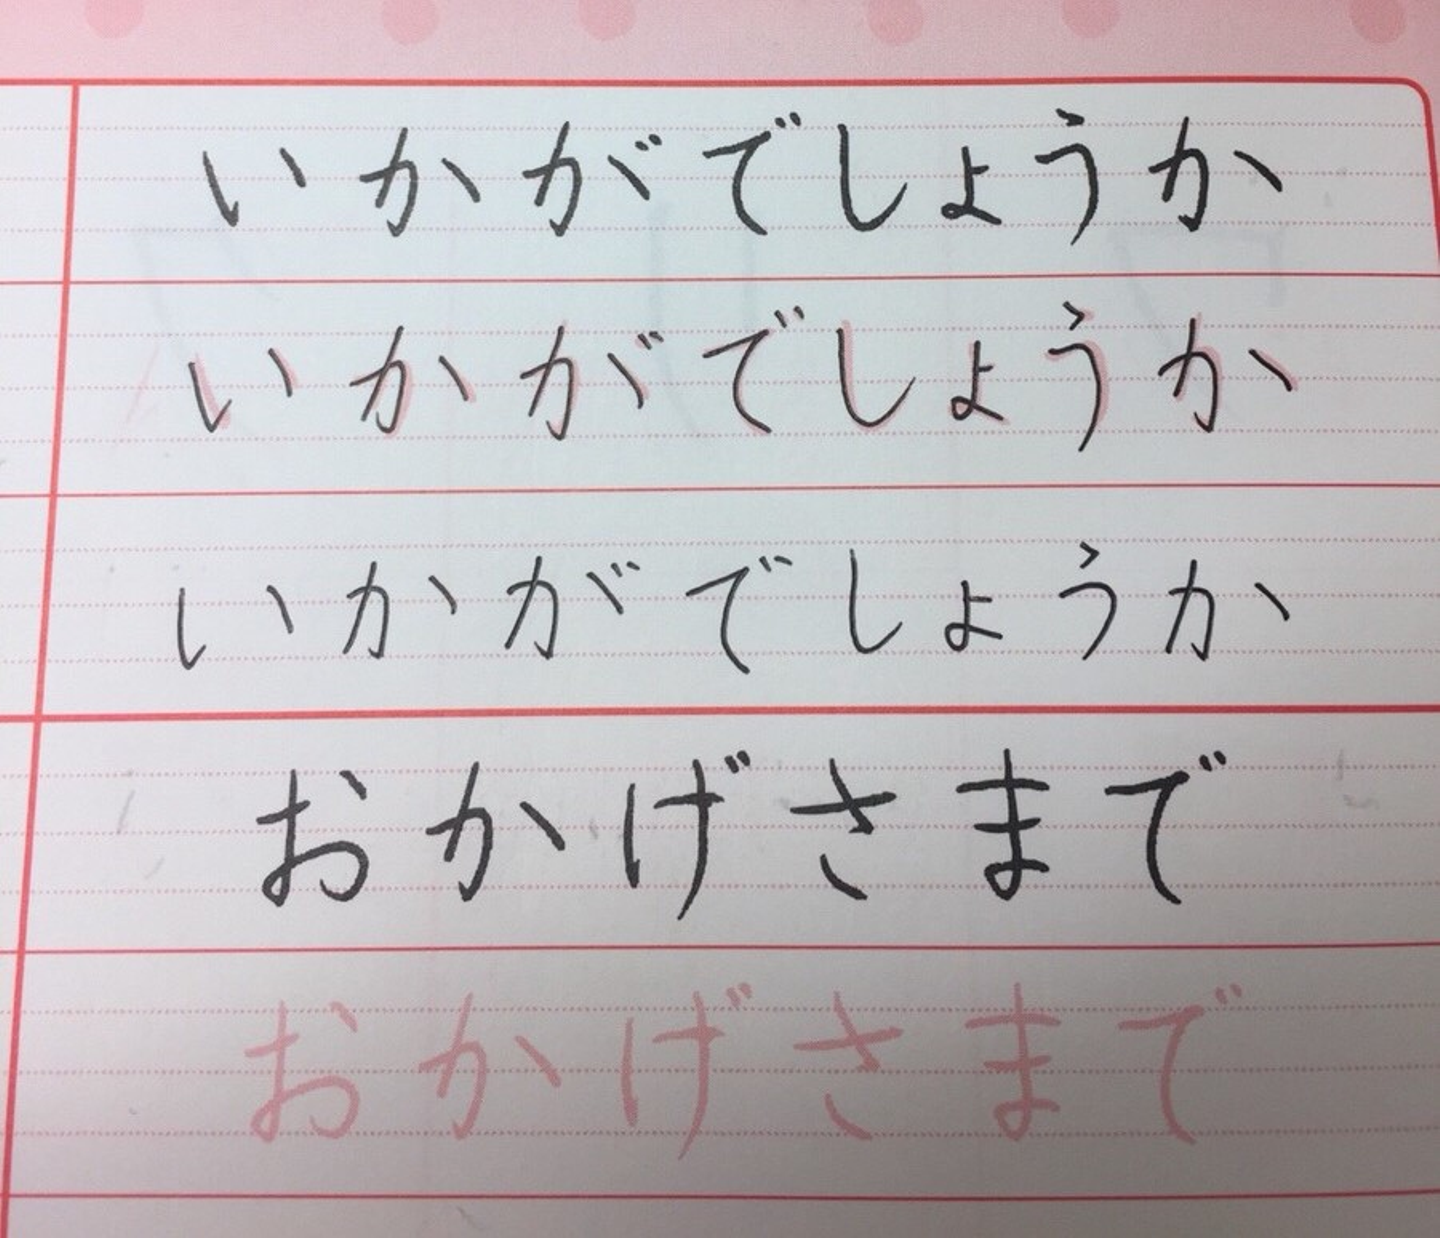 いかがでしょうか
いかがでしょうか
いかがでしょうか
おかげさまで
おかげさまで